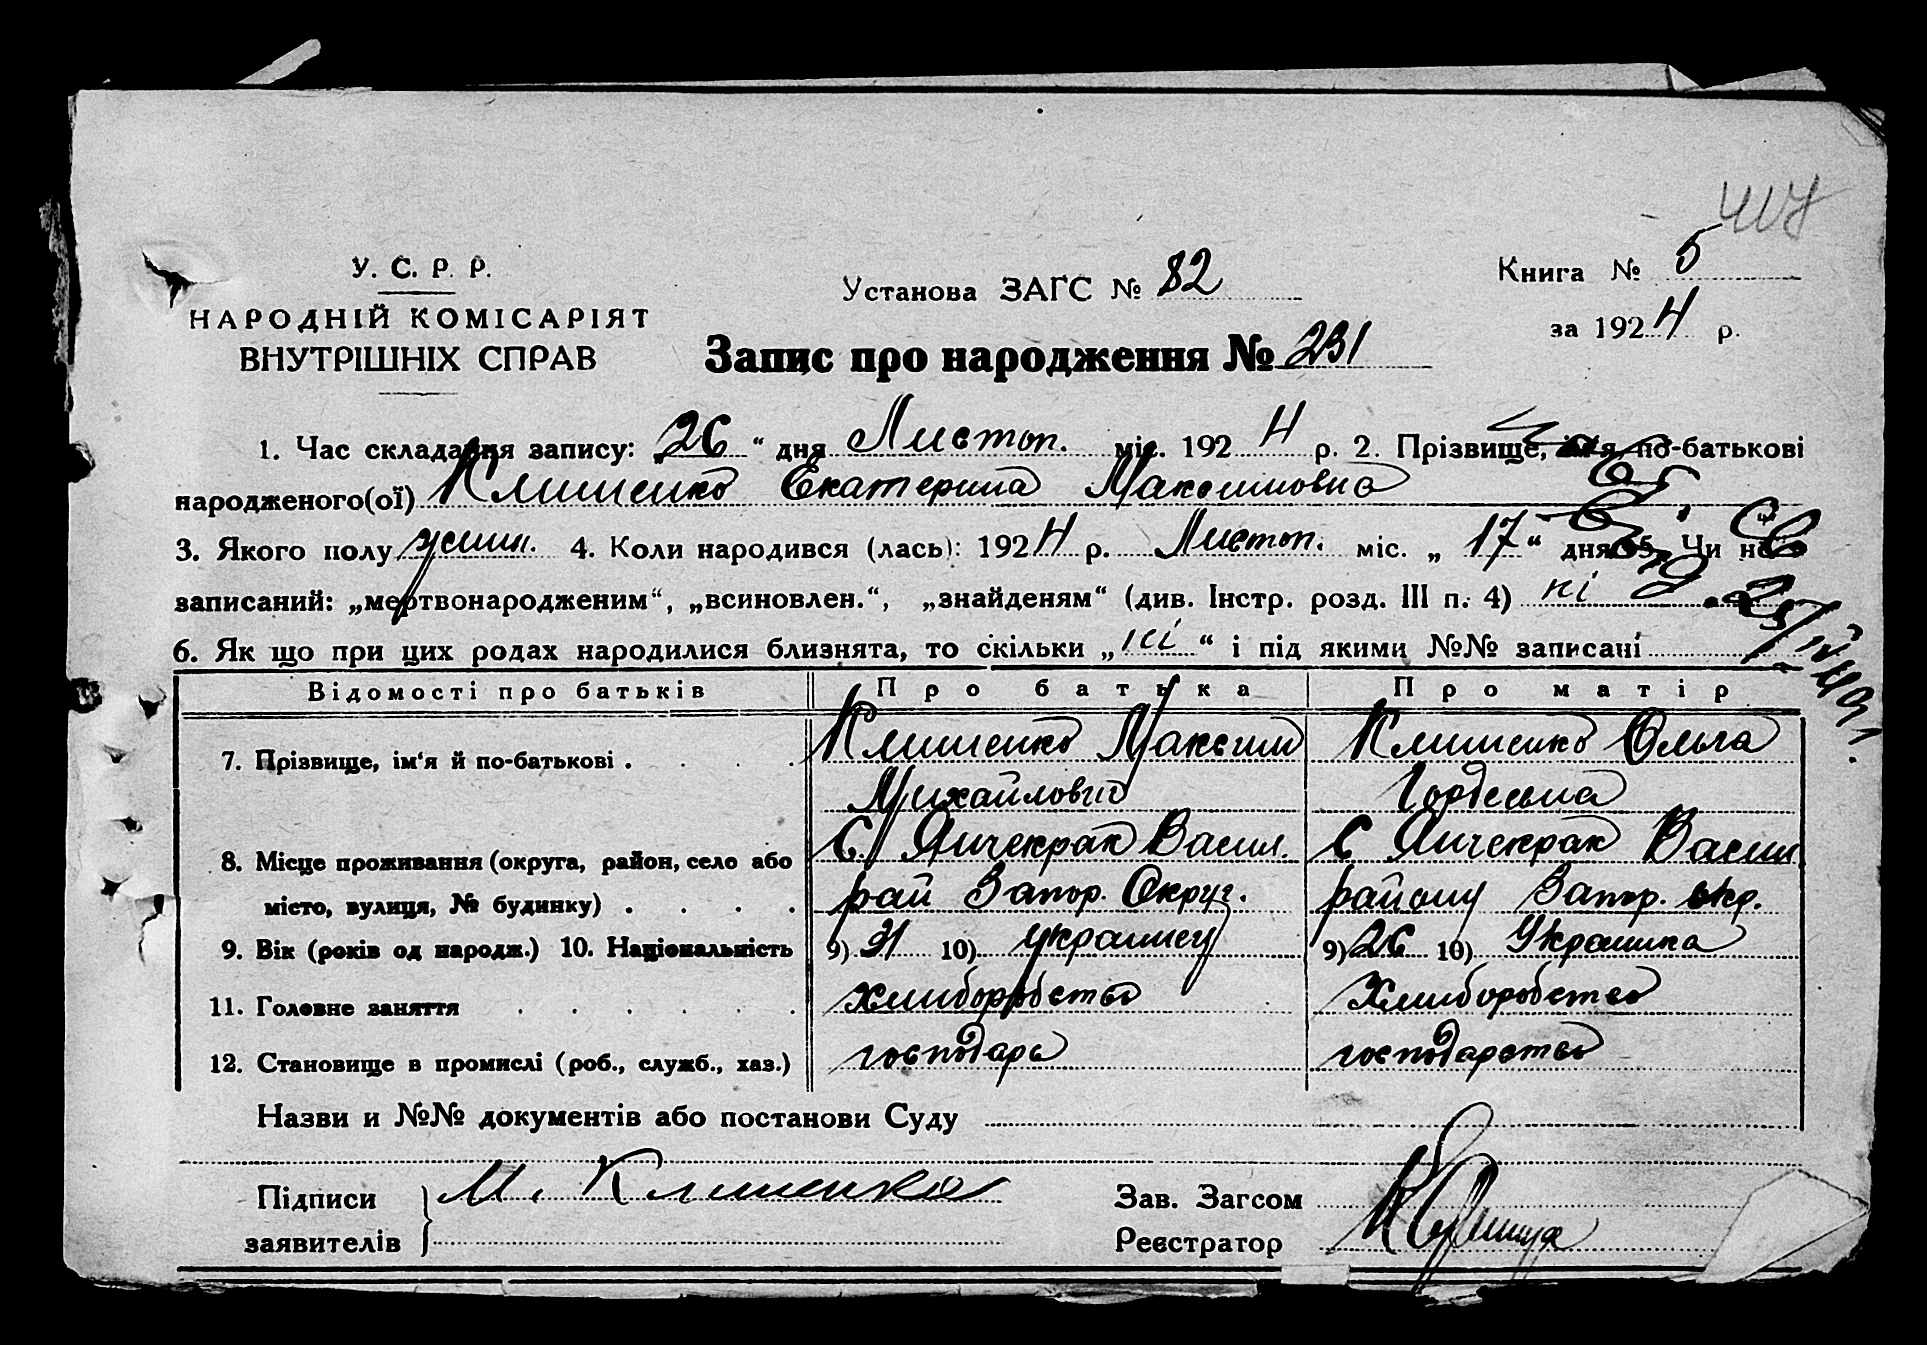 417
У. С. Р. Р.
НАРОДНІЙ КОМІСАРІЯТ
ВНУТРІШНІХ СПРАВ
Установа ЗАГС № 82
Книга № 5
за 1924 р.
Запис про народження № 231
1. Час складання запису: „26“ дня Листоп. міс. 1924 р. 2. Прізвище, ім'я, по-батькові
народженого(ої) Клименко Екатерина Максимовна
3. Якого полу жин. 4. Коли народився (лась): 1924 р. Листоп. міс. „17“ дня 5. Чи не
записаний: „мертвонародженим“, „всиновлен.“, „знайденям“ (див. Інстр. розд. III п. 4) ні
6. Як що при цих родах народилися близнята, то скільки „ні“ і під якими №№ записані
Відомості про батьків Про батька Про матір
7. Прізвище, ім'я й по-батькові . Клименко Максим Клименко Ольга
Михайлович
8. Місце проживання (округа, район, село або С. Янчекрак Васил. С Янчекрак Васил
місто, вулиця, № будинку) . рай Запор. Округ. району Запор. окр.
9. Вік (років од народж.) 10. Національність 9) 31 10) украинец 9) 26 10) Украинка
11. Головне заняття Хлиборобство Хлиборобство
12. Становище в промислі (роб., служб., хаз.) господарь господарство
Назви и №№ документів або постанови Суду
Підписи М. Клименко Зав. Загсом
заявителів Реєстратор